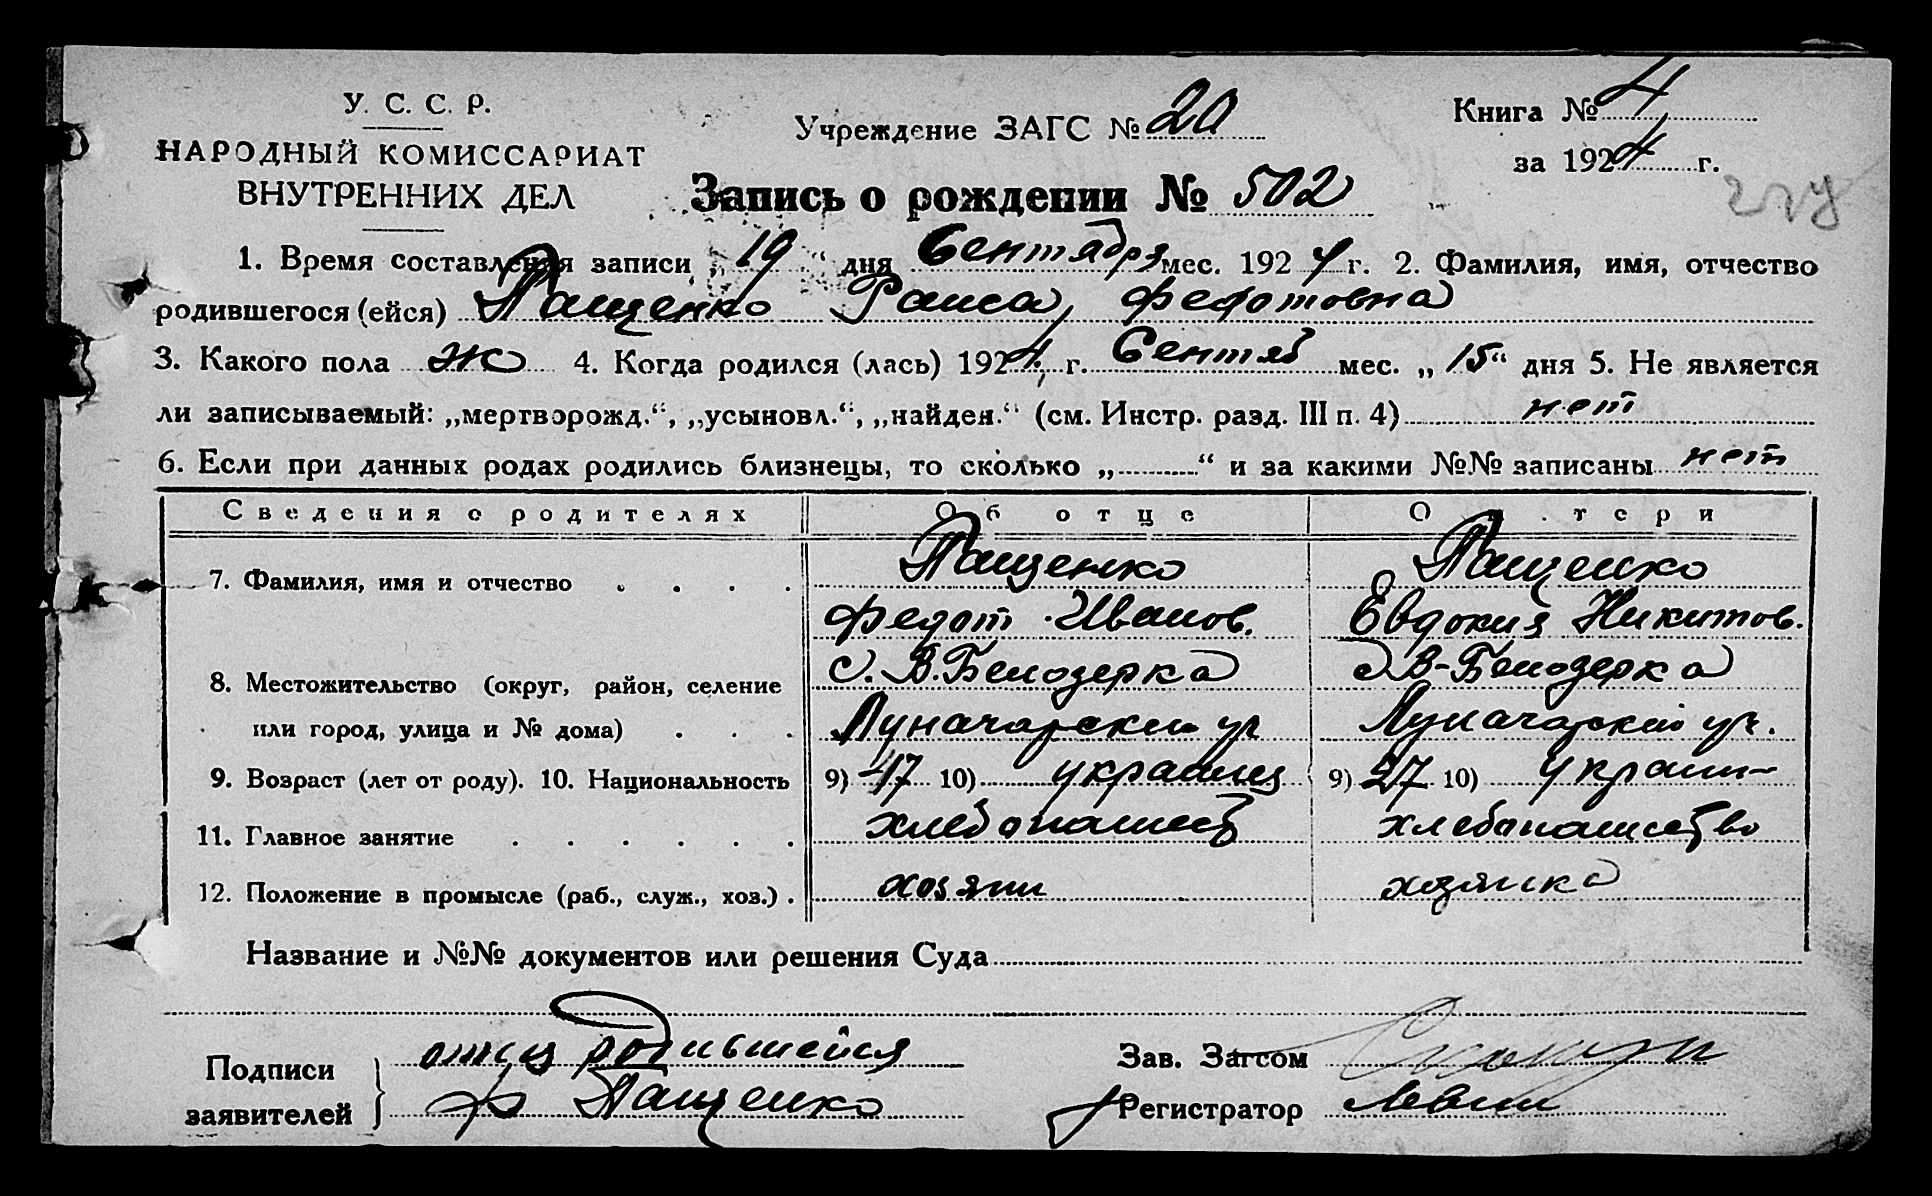 У. С. С. Р.
НАРОДНЫЙ КОМИССАРИАТ
ВНУТРЕННИХ ДЕЛ
Учреждение ЗАГС № 20
Книга № 4
за 1924 г.
Запись о рождении № 502
1. Время составления записи „ 19 “ дня Сентября мес. 1924 г. 2. Фамилия, имя, отчество
родившегося (ейся) Пащенко Раиса, Федотовна
3. Какого пола ж 4. Когда родился (лась) 1924 г. Сентяб мес. „ 15 “ дня 5. Не является
ли записываемый: „мертворожд.“, „усыновл.“, „найден.“ (см. Инстр. разд. III п. 4) нет
6. Если при данных родах родились близнецы, то сколько „ “ и за какими №№ записаны нет
Сведения о родителях Об отце О матери
7. Фамилия, имя и отчество Пащенко Пащенко
Федот Иванов. Евдокия Никитов.
8. Местожительство (округ, район, селение с. В. Белозерка с В-Белозерка
или город, улица и № дома) Луначарский ул Луначарский ул.
9. Возраст (лет от роду). 10. Национальность 9) 47 10) украинец 9) 27 10) украин-
11. Главное занятие хлебопашеств хлебопашество
12. Положение в промысле (раб., служ., хоз.) хозяин хозяйка
Название и №№ документов или решения Суда
Подписи заявителей
отец родившейся
Ф Пащенко
Зав. Загсом
Регистратор Левин